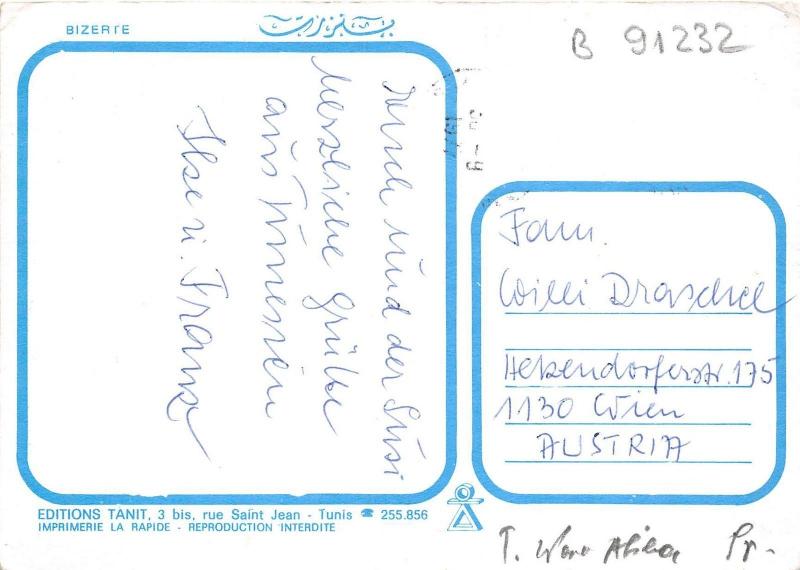 BIZERTE
بنزرت
B 91232
Euch und der Susi
herzliche Grüße
aus Tunesien
Ilse u. Franz
Fam.
Willi Draschel
Hetzendorferstr. 175
1130 Wien
AUSTRIA
EDITIONS TANIT, 3 bis, rue Saint Jean - Tunis ☎ 255.856
IMPRIMERIE LA RAPIDE - REPRODUCTION INTERDITE